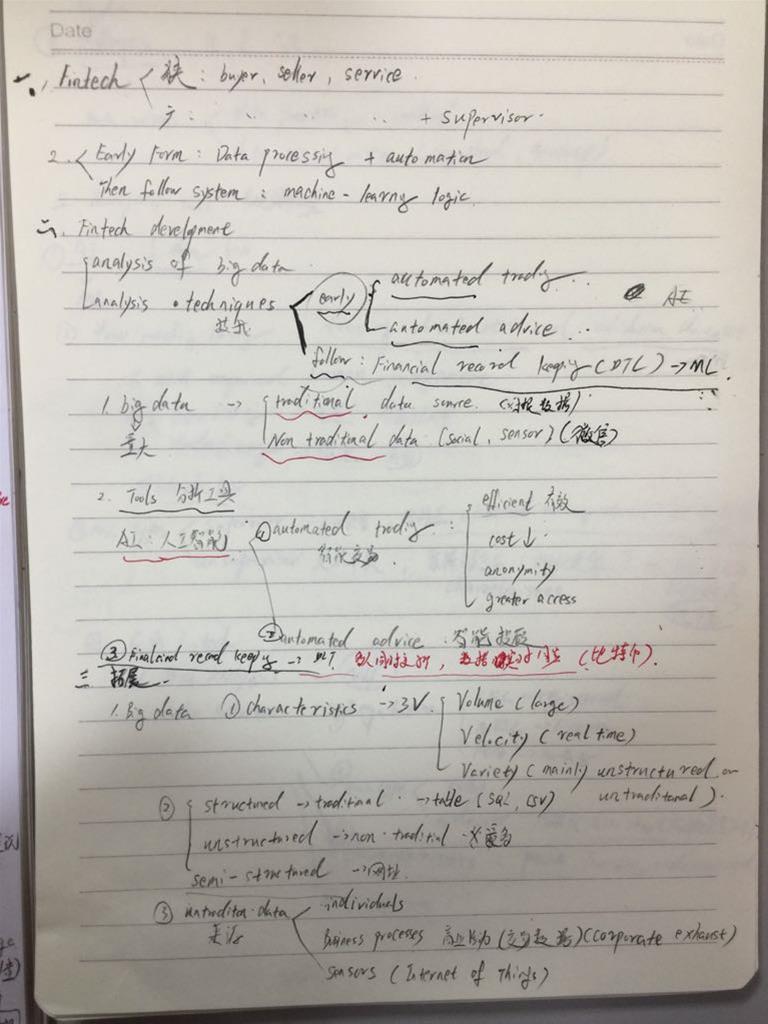 Date
一、Fintech 狭: buyer, seller, service.
广: .. .. .. + supervisor.
2. Early Form: Data processing + automation
Then follow system: machine-learng logic.
二. Fintech development
analysis of big data
analysis techniques
技术
early
automated tradig...
automated advice...
AI
follow: Financial record keepig (DTL) → ML.
1. big data → traditional. data source.
量大
Non traditional data (social, sensor) (微信)
2. Tools 分析工具
AI: 人工智能
① automated tradig:
智能交易
efficient 有效
cost ↓
anonymity
greater access
② automated advice. 智能投顾
③ Finalcind record keepig → DLT. (比特币).
三 拓展.
1. Big data ① characteristics → 3V.
Volume (large)
Velocity (real time)
Variety (mainly unstructured or
untraditonal).
② structured → traditinal. → table (SQL, CSV)
unstructured → non-traditinl
semi-structured → 网址.
③ untraditon-data
来源
individuals
Business processes 商业行为 (交易数据) (corporate exhaust)
sensors (Internet of Things)